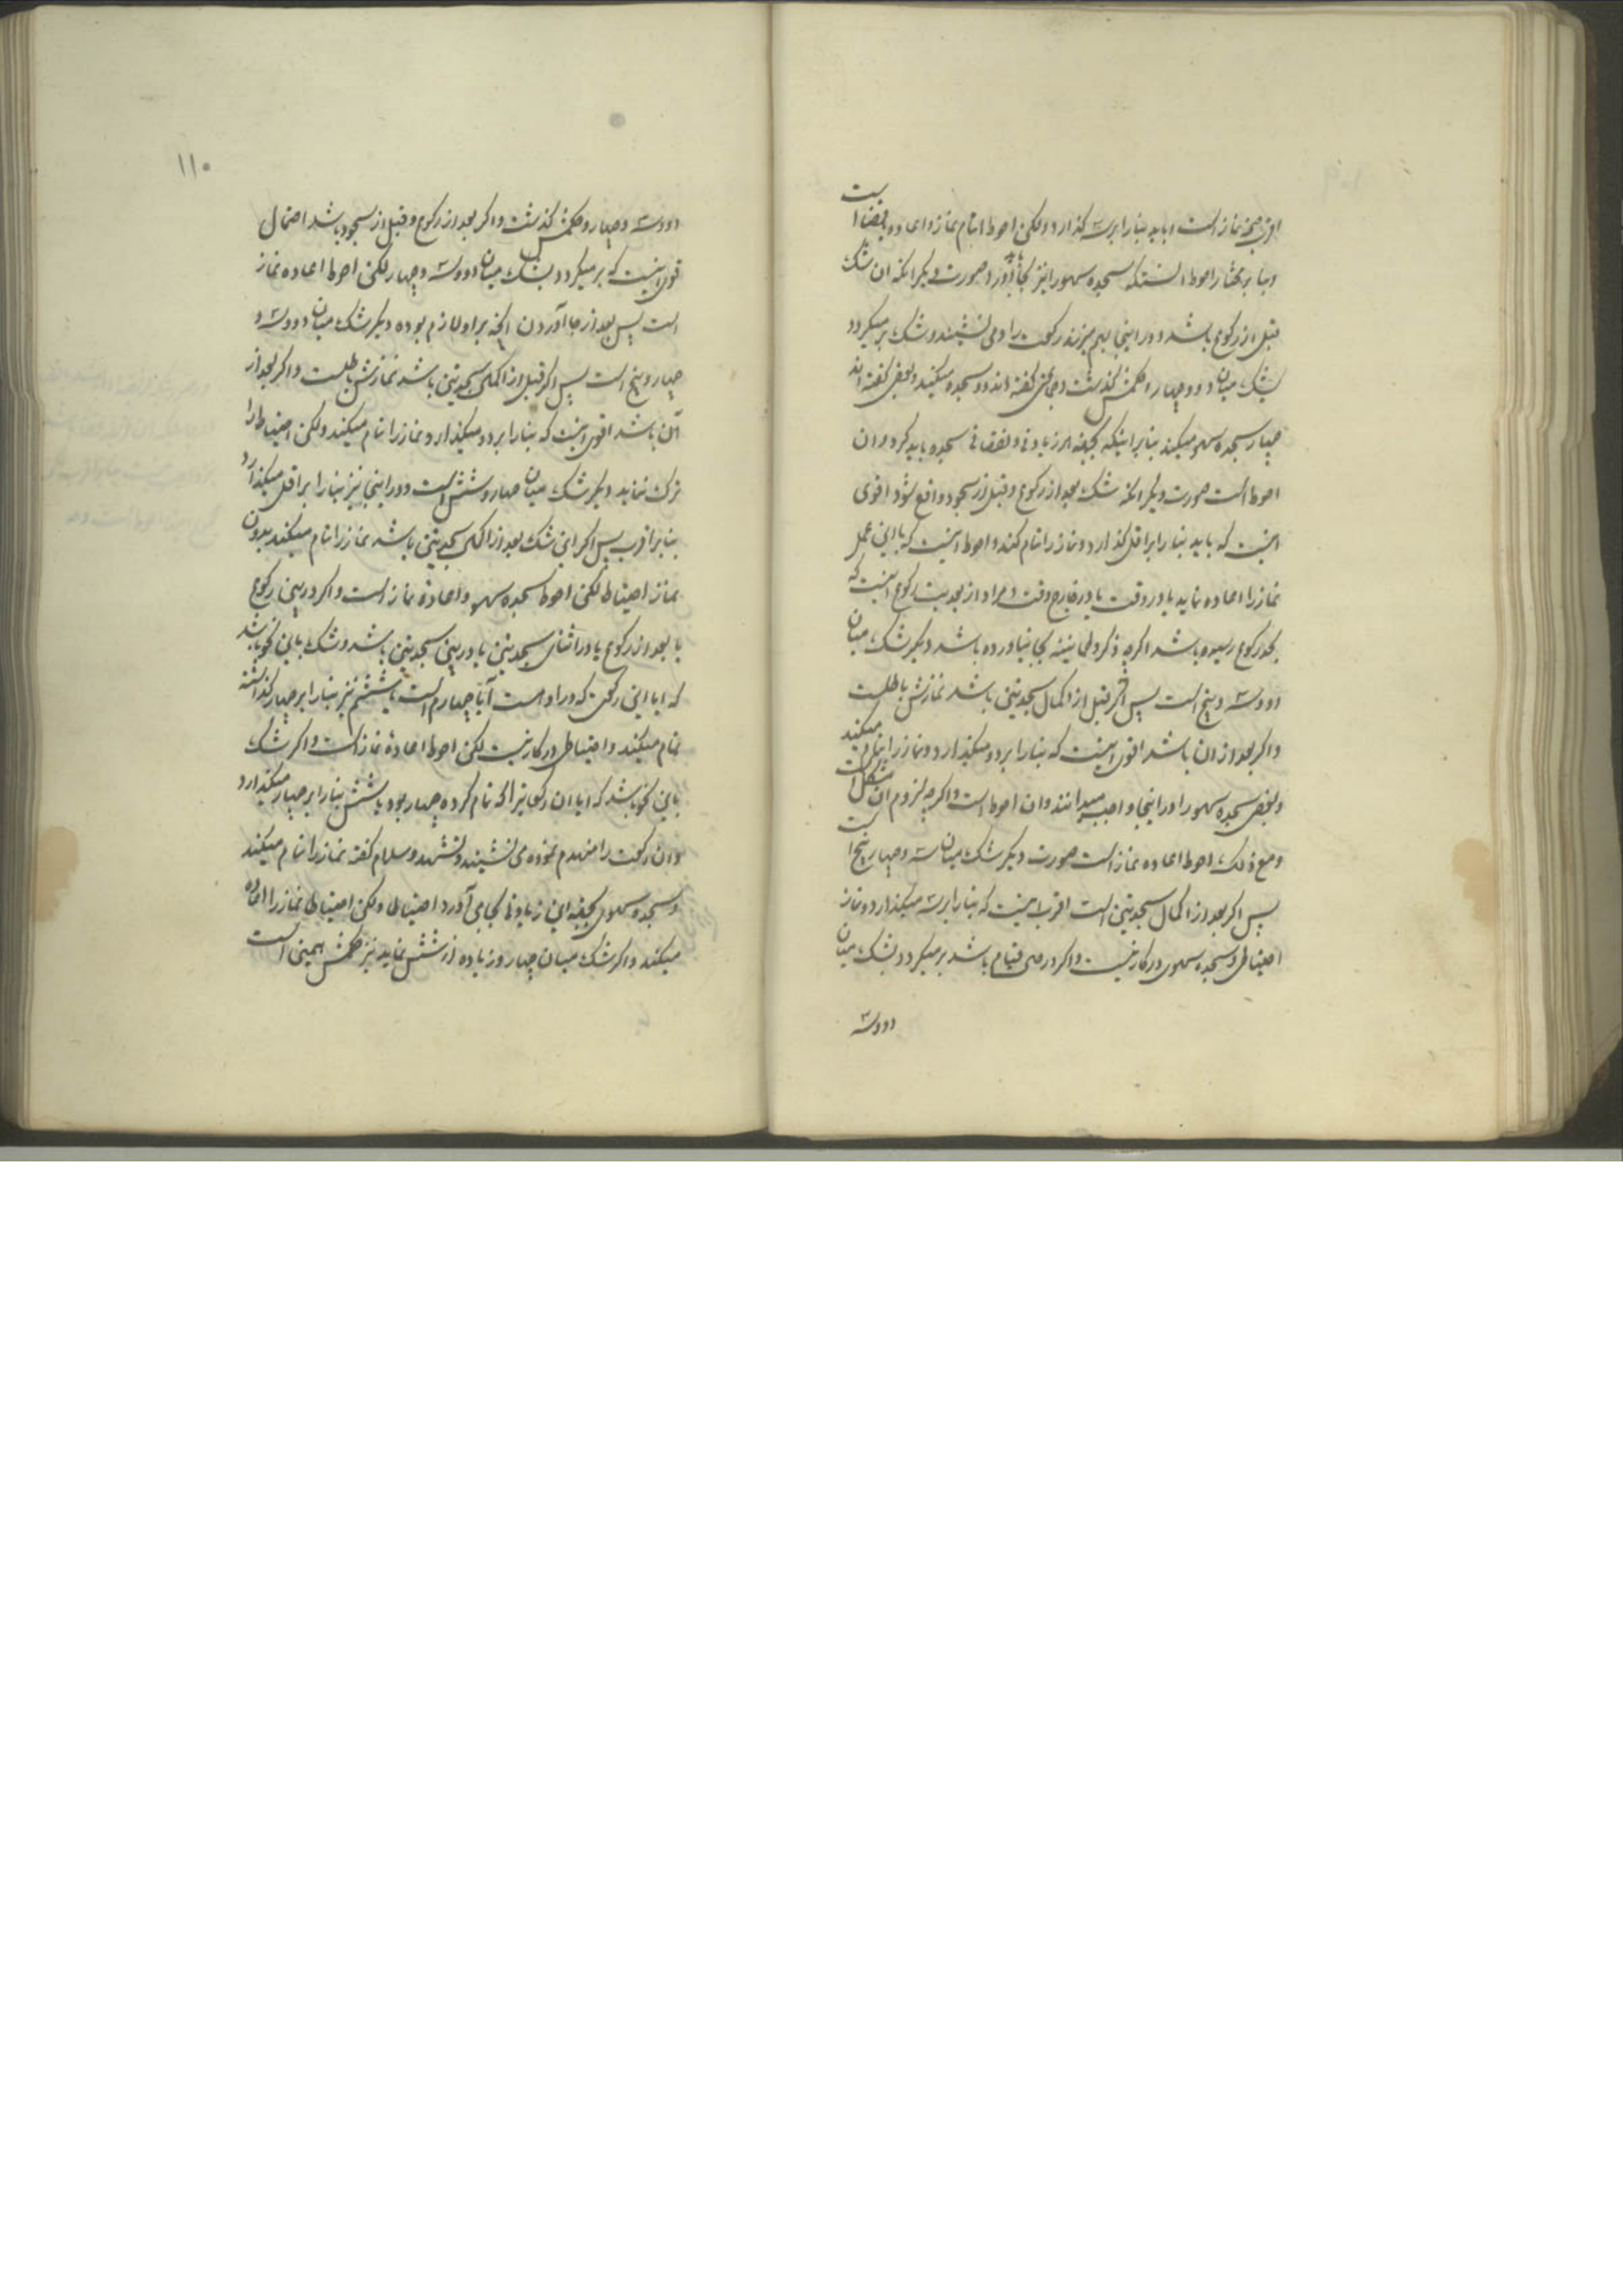 اقرب صحة نماز است و باید بنا را بر سه گذارد و لکن احوط اتمام نماز و اعاده یا قضا است
و بنا بر مختار احوط انستکه سجده سهو را نیز بجا آورد صورت دیگر انکه ان شک
قبل از رکوع باشد و در اینجا بهم میزند رکعت را و می نشیند و شک بر میگردد
بشک میان دو و چهار و حکمش گذشت و جماعتی گفته اند دو سجده میکند و بعضی گفته اند
چهار سجده سهو میکند بنا بر اینکه بجهة هر زیادتی و نقصانی سجده باید کرد و ان
احوط است صورت دیگر انکه شک بعد از رکوع و قبل از سجود واقع شود اقوی
اینست که باید بنا را بر اقل گذارد و نماز را تمام کند و احوط اینست که با این عمل
نماز را اعاده نماید یا در وقت یا در خارج وقت و مراد از بعدیت رکوع اینست که
بحد رکوع رسیده باشد اگرچه ذکر و طمانینه بجا نیاورده باشد دیگر شک میان
دو و سه و پنج است پس اگر قبل از اکمال سجدتین باشد نمازش باطلست
و اگر بعد از ان باشد اقوی اینست که بنا را بر دو میگذارد و نماز را تمام میکند
و بعضی سجده سهو را در اینجا واجب میدانند و ان احوط است و اگرچه لزوم ان مشکل است
و مع ذلک احوط اعاده نماز است صورت دیگر شک میان سه و چهار و پنج است
پس اگر بعد از اکمال سجدتین است اقرب اینست که بنا را بر سه میگذارد و نماز
احتیاطی و سجده سهوی در کار نیست و اگر در حین قیام باشد بر میگردد بشک میان
دو و سه
١١٠
دو و سه و چهار و حکمش گذشت و اگر بعد از رکوع و قبل از سجود باشد احتمال
قوی اینست که بر میگردد بشک میان دو و سه و چهار لکن احوط اعاده نماز
است پس بعد از بجا آوردن انچه بر او لازم بوده دیگر شک میان دو و سه و
چهار و پنج است پس اگر قبل از اکمال سجدتین باشد نمازش باطلست و اگر بعد از
آن باشد اقوی اینست که بنا را بر دو میگذارد و نماز را تمام میکند و لکن احتیاط را
ترک ننماید دیگر شک میان چهار و شش است و در اینجا نیز بنا را بر اقل میگذارد
بنا بر اقرب پس اگر این شک بعد از اکمال سجدتین باشد نماز را تمام میکند بدون
نماز احتیاط لکن احوط سجده سهو و اعادهٔ نماز است و اگر در بین رکوع
یا بعد از رکوع یا در اثنای سجدتین یا در بین سجدتین باشد و شک باین نحو باشد
که ایا این رکعتی که در او هست آیا چهارم است یا ششم نیز بنا را بر چهار گذاشته
تمام میکند و احتیاطی در کار نیست لکن احوط اعادهٔ نماز است و اگر شک
باین نحو باشد که ایا ان رکعتیرا که تمام کرده چهار بود یا شش بنا را بر چهار میگذارد
و ان رکعت را منهدم نموده می نشیند و تشهد و سلام گفته نماز را تمام میکند
و سجده سهوی بجهة این زیادتی بجا می آورد احتیاطا و لکن احتیاطا نماز را اعاده
میکند و اگر شک میان چهار و زیاده از شش نماید نیز حکمش همین است